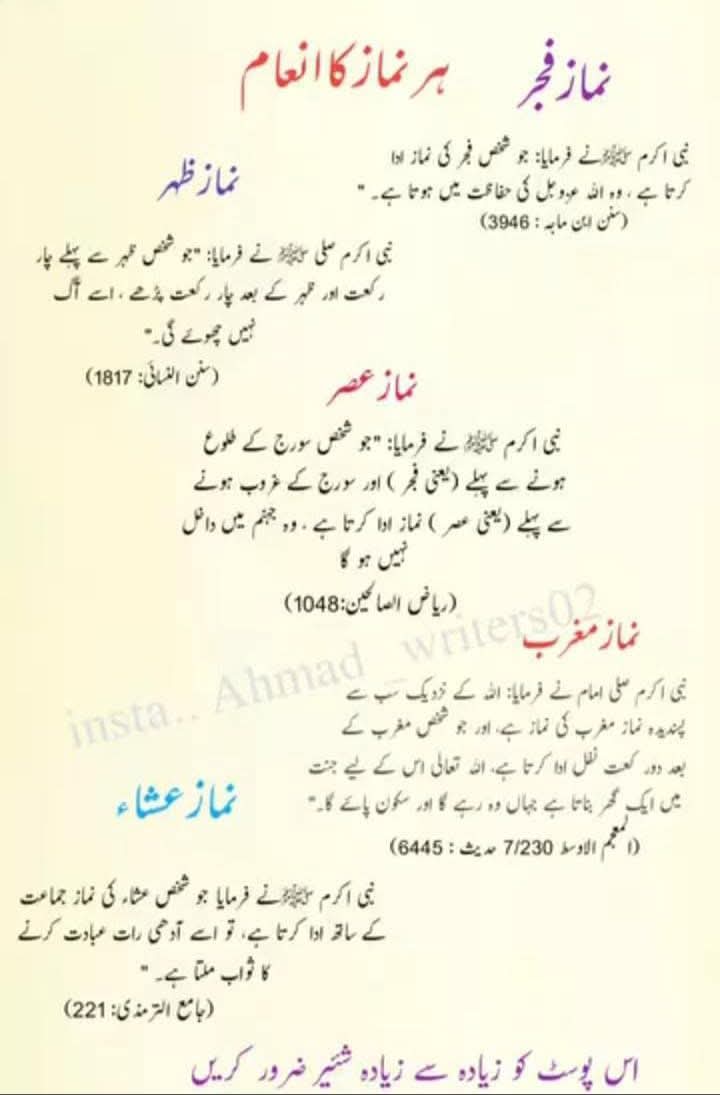 ہر نماز کا انعام
نماز فجر
نبی اکرم ﷺ نے فرمایا: جو شخص فجر کی نماز ادا
کرتا ہے، وہ اللہ عزوجل کی حفاظت میں ہوتا ہے۔"
(سنن ابن ماجہ : 3946)
نماز ظہر
نبی اکرم صلی ﷺ نے فرمایا: "جو شخص ظہر سے پہلے چار
رکعت اور ظہر کے بعد چار رکعت پڑھے، اسے آگ
نہیں چھوئے گی۔"
(سنن النسائی: 1817)
نماز عصر
نبی اکرم ﷺ نے فرمایا: "جو شخص سورج کے طلوع
ہونے سے پہلے (یعنی فجر) اور سورج کے غروب ہونے
سے پہلے (یعنی عصر) نماز ادا کرتا ہے، وہ جہنم میں داخل
نہیں ہو گا
(ریاض الصالحین:1048)
insta.. Ahmad _writers02
نماز مغرب
نبی اکرم صلی امام نے فرمایا: اللہ کے نزدیک سب سے
پسندیدہ نماز مغرب کی نماز ہے، اور جو شخص مغرب کے
بعد دور کعت نفل ادا کرتا ہے، اللہ تعالی اس کے لیے جنت
میں ایک گھر بناتا ہے جہاں وہ رہے گا اور سکون پائے گا۔"
(المعجم الاوسط 7/230 حدیث : 6445)
نماز عشاء
نبی اکرم ﷺ نے فرمایا جو شخص عشاء کی نماز جماعت
کے ساتھ ادا کرتا ہے، تو اسے آدھی رات عبادت کرنے
کا ثواب ملتا ہے۔"
(جامع الترمذی: 221)
اس پوسٹ کو زیادہ سے زیادہ شئیر ضرور کریں